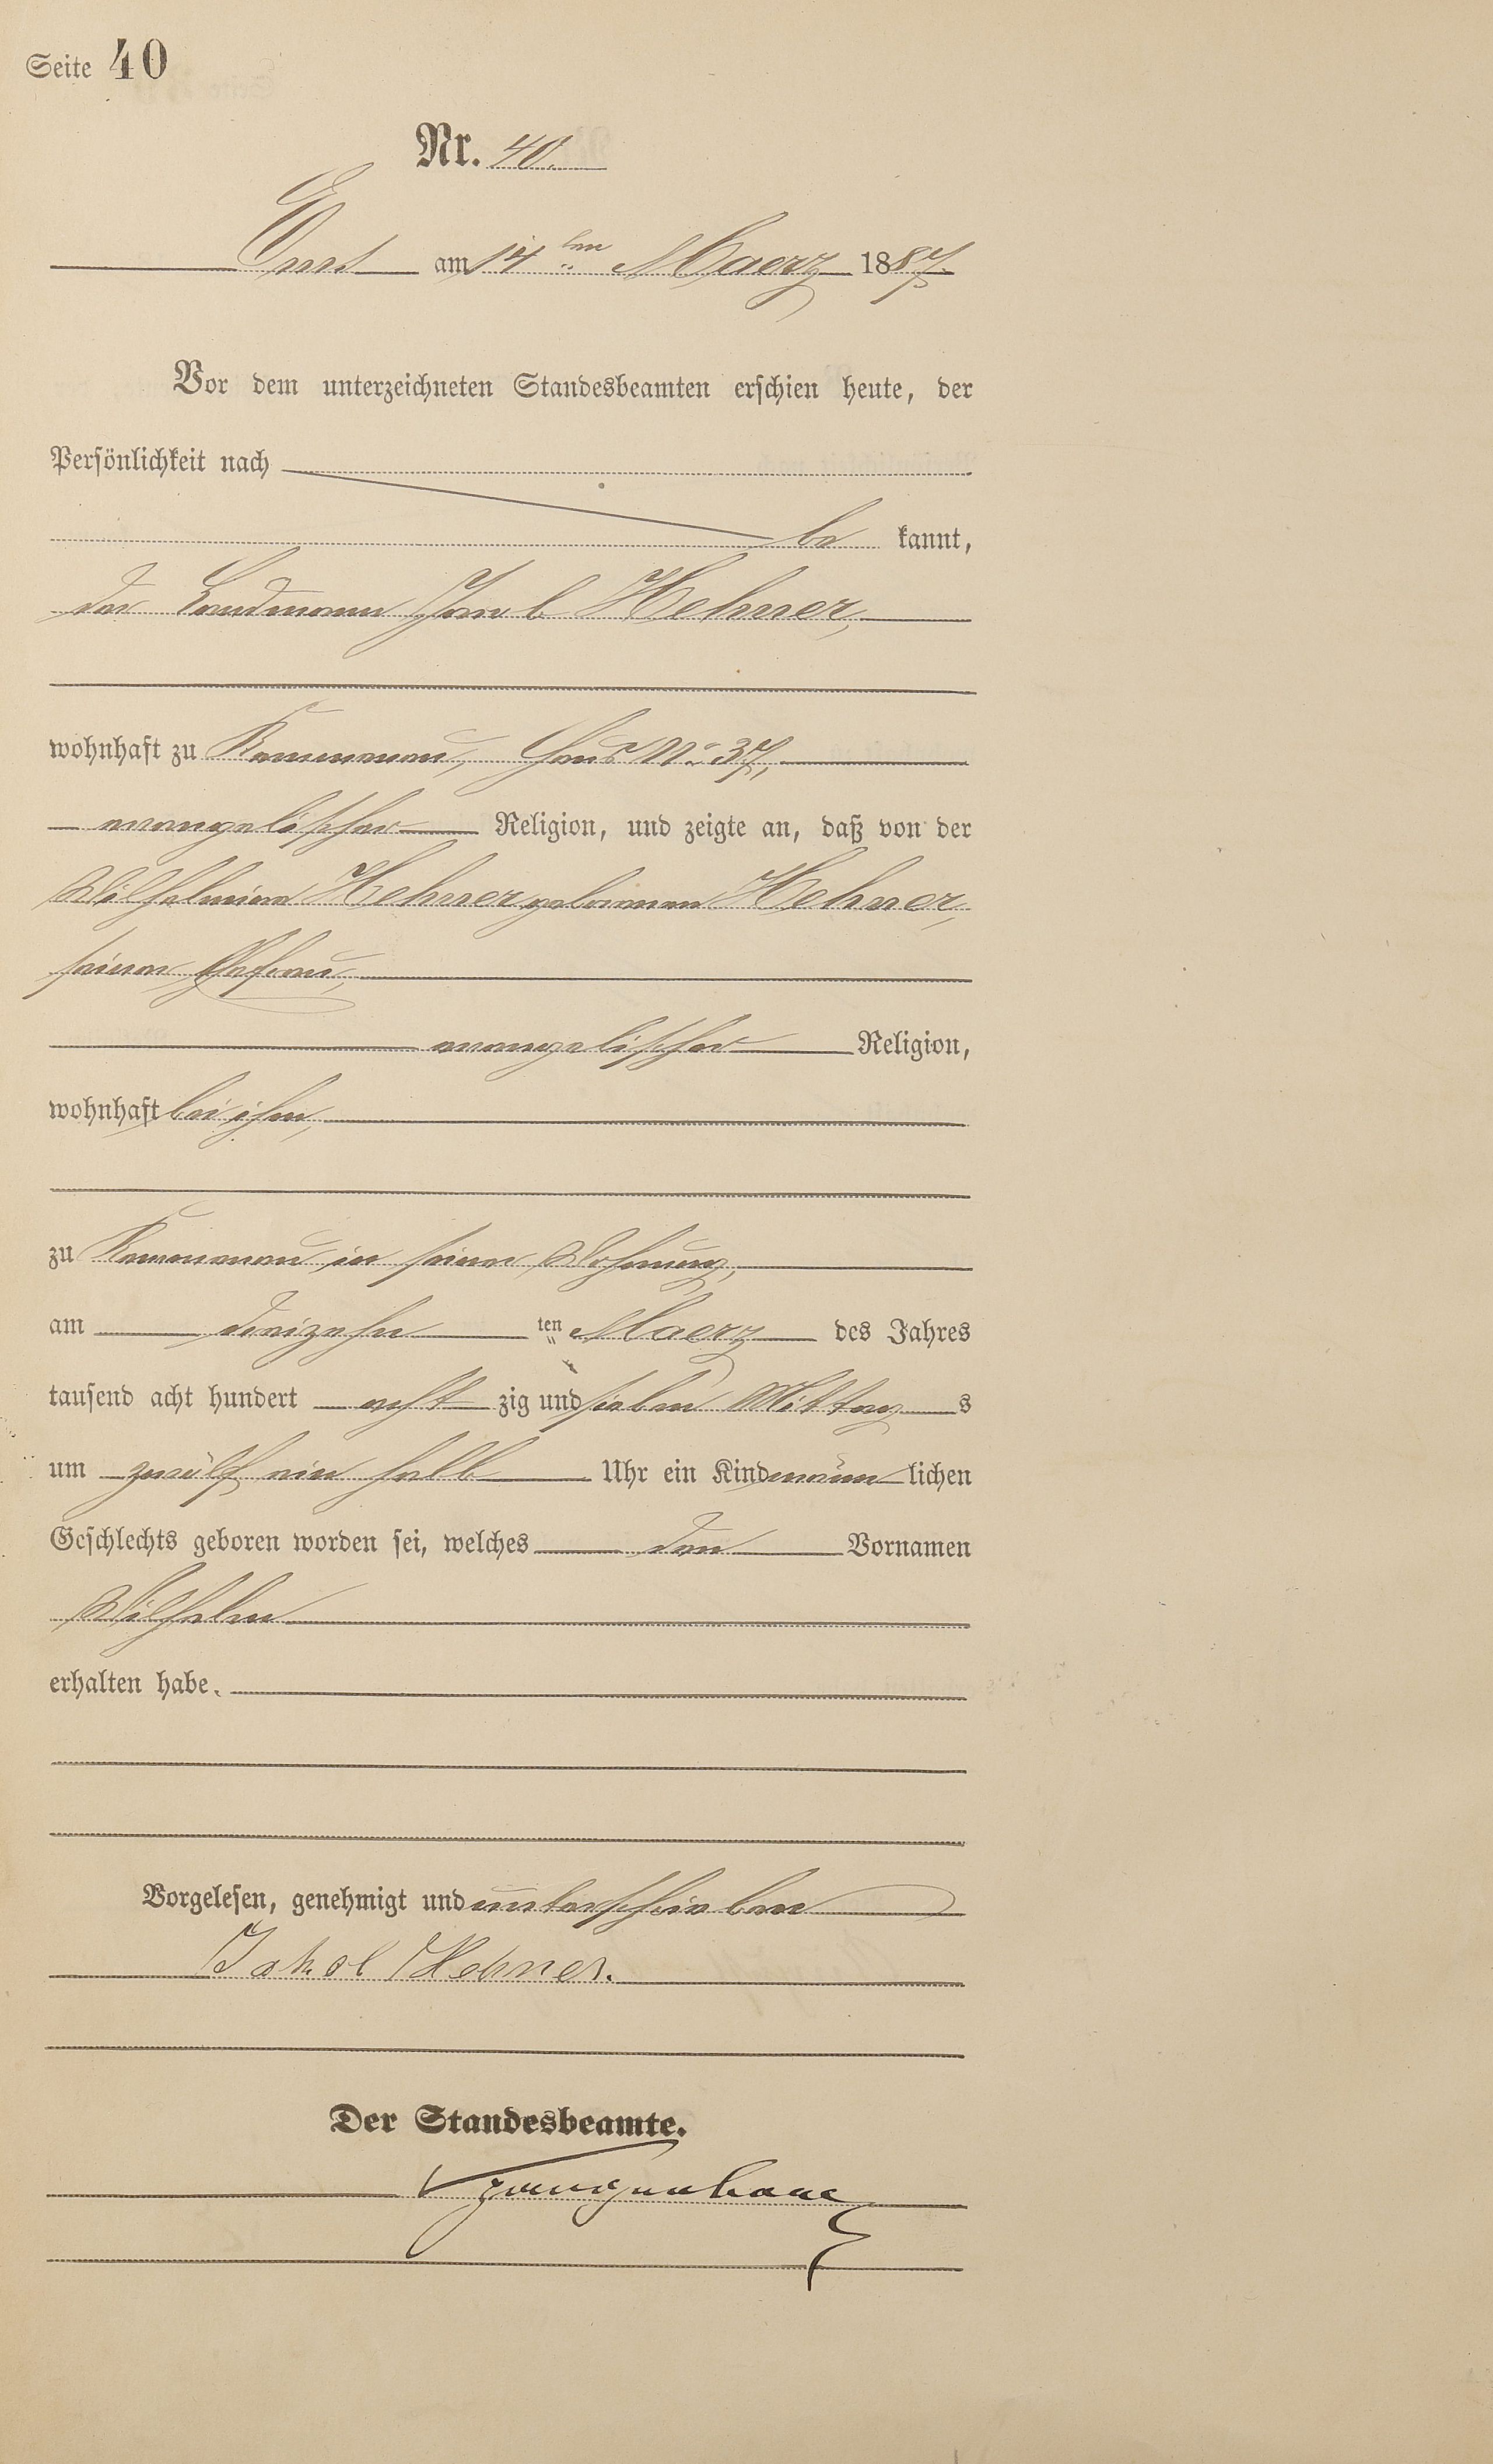 Seite 40
Nr. 40.
Ems am 14ten Maerz 1887.
Vor dem unterzeichneten Standesbeamten erschien heute, der
Persönlichkeit nach
be kannt,
der Landmann Jacob Hehner,
wohnhaft zu Kemmenau, Haus No. 37,
evangelischer Religion, und zeigte an, daß von der
Wilhelmine Hehner geborenen Hehner,
seiner Ehefrau,
evangelischer Religion,
wohnhaft bei ihm,
zu Kemmenau in seiner Wohnung,
am dreizehn ten Maerz des Jahres
tausend acht hundert acht zig und sieben Mittag s
um zwölf ein halb Uhr ein Kind männ lichen
Geschlechts geboren worden sei, welches den Vornamen
Wilhelm
erhalten habe.
Vorgelesen, genehmigt und unterschrieben
Jakob Hehner.
Der Standesbeamte.